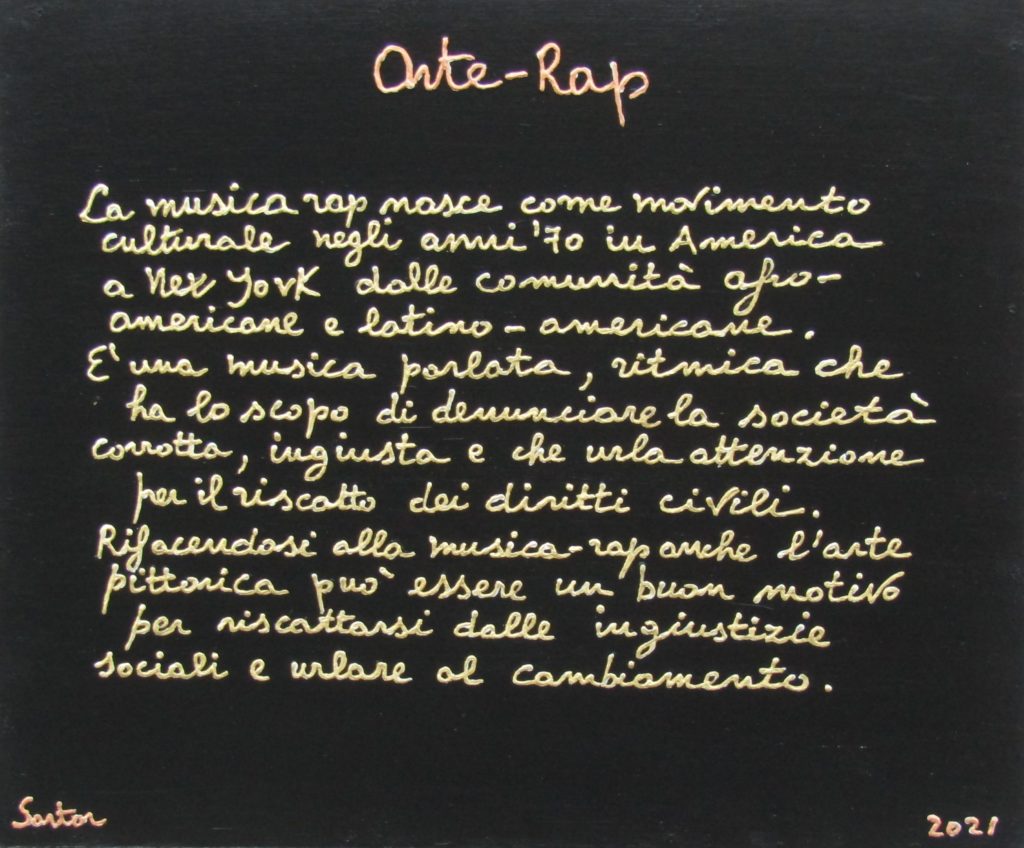 Arte-Rap
La musica rap nasce come movimento
culturale negli anni '70 in America
a New York dalle comunità afro-
americane e latino-americane.
E' una musica parlata, ritmica che
ha lo scopo di denunciare la società
corrotta, ingiusta e che urla attenzione
per il riscatto dei diritti civili.
Rifacendosi alla musica-rap anche l'arte
pittorica può essere un buon motivo
per riscattarsi dalle ingiustizie
sociali e urlare al cambiamento.
Sartor
2021